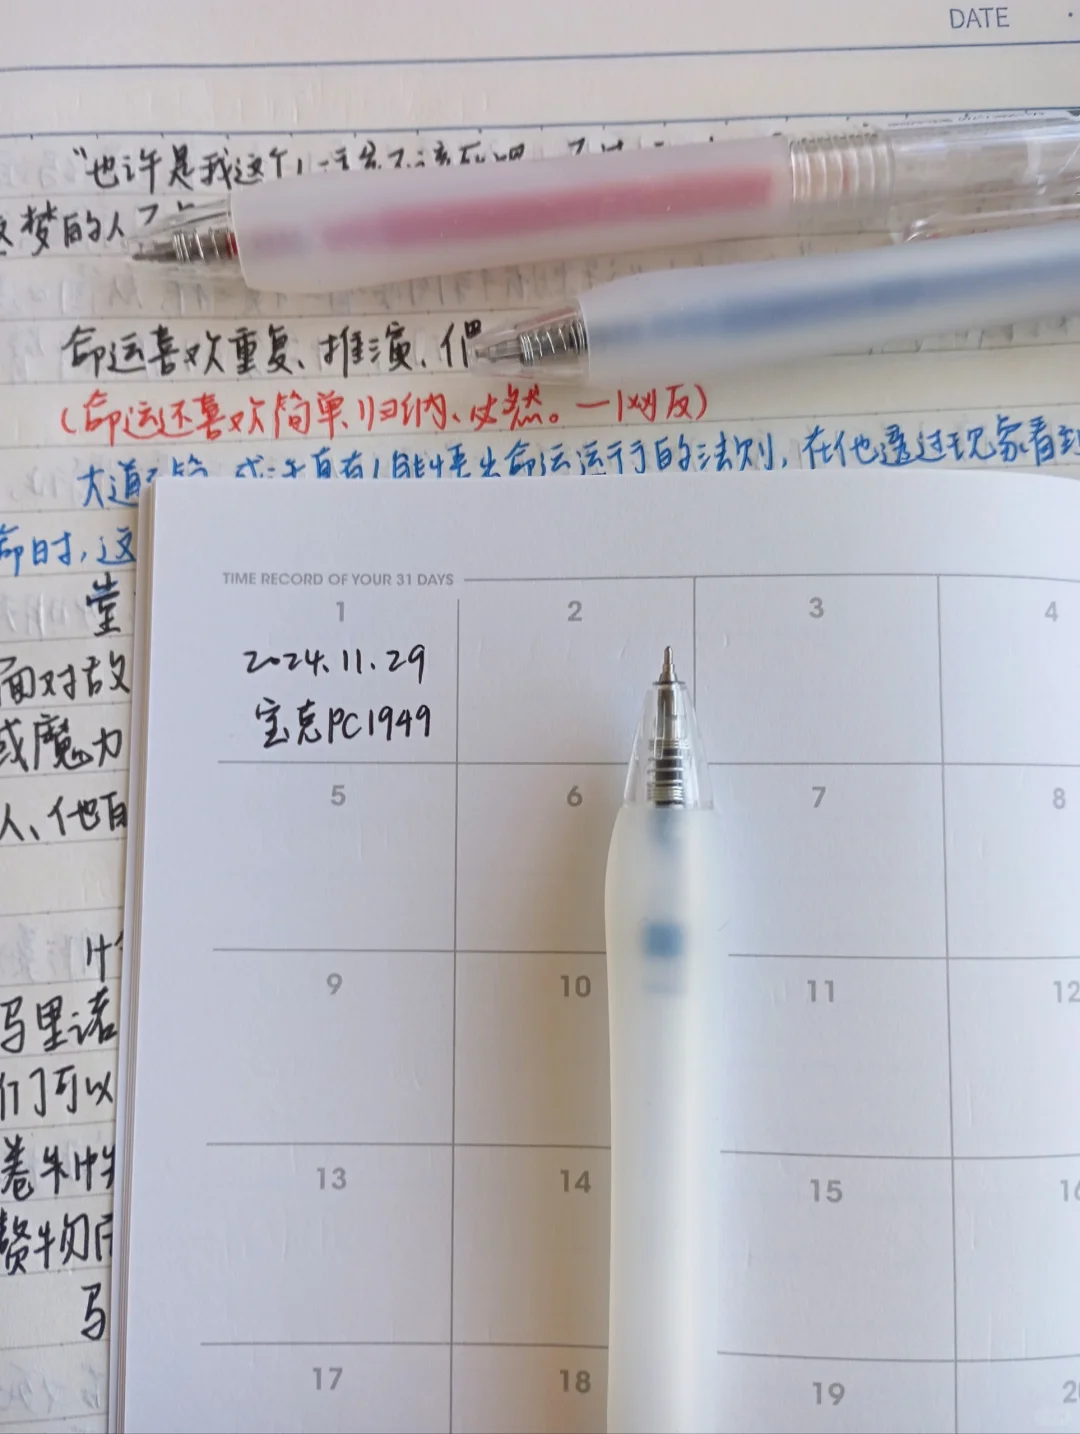 DATE
"也许是我这个
梦的人
命运喜欢重复、推演、
(命运还喜欢简单、归纳、必然。一网友)
大道 命运运行的法则,在他透过现象看到
命时,这
堂
面对故
或魔力
人、他
TIME RECORD OF YOUR 31 DAYS
1 2 3 4
2024.11.29
宝克PC1949
5 6 7 8
9 10 11 12
13 14 15
17 18 19
马里诺
们可以
卷
赘物
马